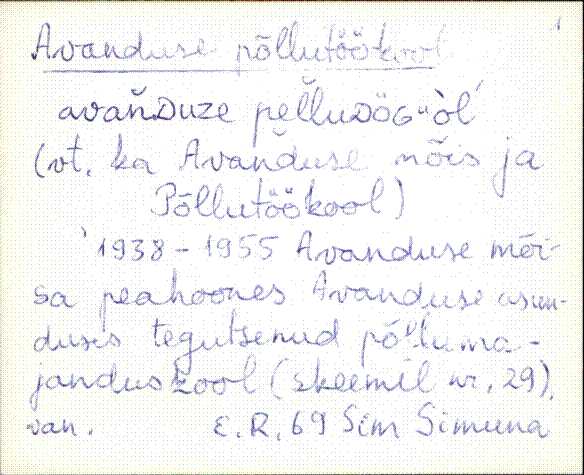 1
Avanduse põllutöökool
avaňDuze pel̆luDöG"òl'
(vt. ka Avanduse mõis ja
Põllutöökool)
1938 - 1955 Avanduse mõi-
sa peahoones Avanduse asun-
duses tegutsenud põlluma-
janduskool (skeemil nr. 29),
van. E.R. 69 Sim Simuna